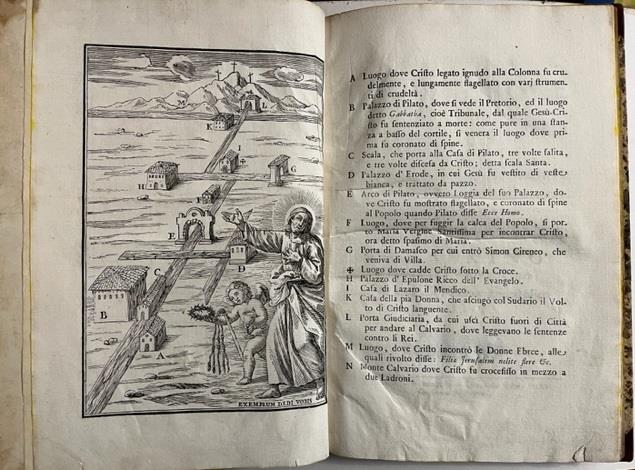 A
B
C
D
E
G
H
I
K
L
M
EXEMPLUM DEDI VOBIS
A Luogo dove Criſto legato ignudo alla Colonna fu cru-
delmente, e lungamente flagellato con varj ſtrumen-
ti di crudeltà.
B Palazzo di Pilato, dove ſi vede il Pretorio, ed il luogo
detto Gabbatha, cioè Tribunale, dal quale Gesù-Cri-
ſto fu ſentenziato a morte: come pure in una ſtan-
za a baſſo del cortile, ſi venera il luogo dove pri-
ma fu coronato di ſpine.
C Scala, che porta alla Caſa di Pilato, tre volte ſalita,
e tre volte diſceſa da Criſto; detta ſcala Santa.
D Palazzo d' Erode, in cui Gesù fu veſtito di veſte
bianca, e trattato da pazzo.
E Arco di Pilato, ovvero Loggia del ſuo Palazzo, do-
ve Criſto fu moſtrato flagellato, e coronato di ſpine
al Popolo quando Pilato diſſe Ecce Homo.
F Luogo, dove per fuggir la calca del Popolo, ſi por-
tò Maria Vergine Santiſſima per incontrar Criſto,
ora detto ſpaſimo di Maria.
G Porta di Damaſco per cui entrò Simon Cireneo, che
veniva di Villa.
✠ Luogo dove cadde Criſto ſotto la Croce.
H Palazzo d' Epulone Ricco dell' Evangelo.
I Caſa di Lazaro il Mendico.
K Caſa della pia Donna, che aſciugò col Sudario il Vol-
to di Criſto languente.
L Porta Giudiciaria, da cui uſcì Criſto fuori di Città
per andare al Calvario, dove leggevano le ſentenze
contro li Rei.
M Luogo, dove Criſto incontrò le Donne Ebree, alle
quali rivolto diſſe: Filiæ Jeruſalem nolite flere &c.
N Monte Calvario dove Criſto fu crocefiſſo in mezzo a
due Ladroni.